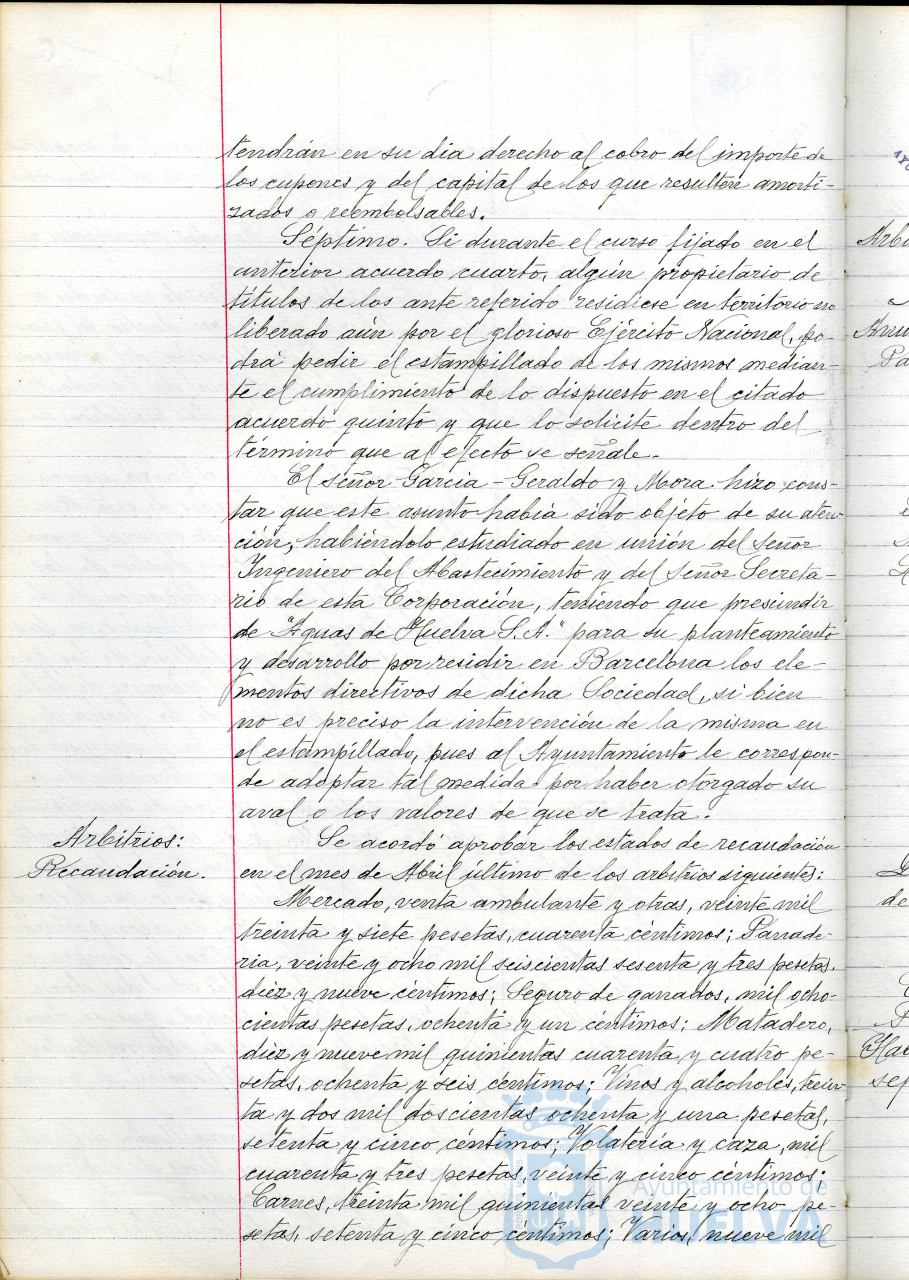 tendrán en su dia derecho al cobro del importe de
los cupones y del capital de los que resultere amorti-
zados o reembolsables.
Séptimo. Si durante el curso fijado en el
anterior acuerdo cuarto, algún propietario de
títulos de los ante referido residiese en territorio no
liberado aún por el glorioso Ejército Nacional, po-
drá pedir el estampillado de los mismos median-
te el cumplimiento de lo dispuesto en el citado
acuerdo quinto y que lo solicite dentro del
término que al efecto se señale.
El señor Garcia-Geraldo y Mora hizo cons-
tar que este asunto había sido objeto de su aten-
ción, habiéndolo estudiado en unión del señor
Ingeniero del Abastecimiento y del señor Secreta-
rio de esta Corporación, teniendo que prescindir
de "Aguas de Huelva S.A." para su planteamiento
y desarrollo por residir en Barcelona los ele-
mentos directivos de dicha Sociedad, si bien
no es preciso la intervención de la misma en
el estampillado, pues al Ayuntamiento le correspon-
de adoptar tal medida por haber otorgado su
aval o los valores de que se trata.
Arbitrios:
Recaudación.
Se acordó aprobar los estados de recaudación
en el mes de Abril último de los arbitrios siguientes:
Mercado, venta ambulante y otras, veinte mil
treinta y siete pesetas, cuarenta céntimos; Panade-
ria, veinte y ocho mil seiscientas sesenta y tres pesetas,
diez y nueve céntimos; Seguro de ganados, mil ocho-
cientas pesetas, ochenta y un céntimos; Matadero,
diez y nueve mil quinientas cuarenta y cuatro pe-
setas, ochenta y seis céntimos; Vinos y alcoholes, trein-
ta y dos mil doscientas ochenta y una pesetas,
setenta y cinco céntimos; Volateria y caza, mil
cuarenta y tres pesetas, veinte y cinco céntimos;
Carnes, treinta mil quinientas veinte y ocho pe-
setas, setenta y cinco céntimos; Varios, nueve mil
Ayuntamiento de
HUELVA